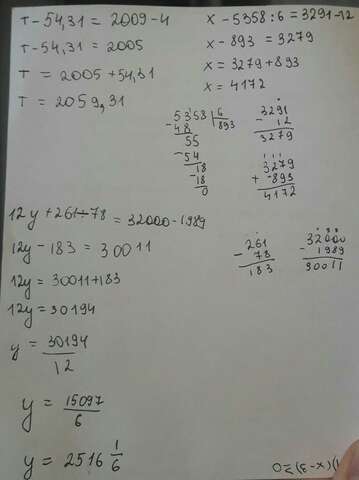 т - 54,31 = 2009 - 4
т - 54,31 = 2005
т = 2005 + 54,31
т = 2059,31
x - 5358 : 6 = 3291 - 12
x - 893 = 3279
x = 3279 + 893
x = 4172
5358 | 6
48 893
55
- 54
18
- 18
0
3291
- 12
3279
3279
+ 893
4172
12y + 261 - 78 = 32000 - 1989
12y - 183 = 30011
12y = 30011 + 183
12y = 30194
y = 30194
12
y = 15097
6
y = 2516 1
6
261
- 78
183
32000
- 1989
30011